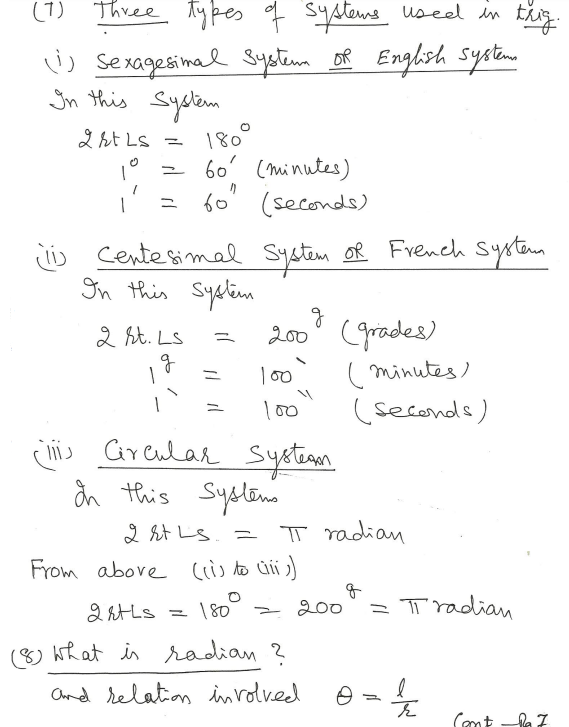 (7) Three types of systems used in trig.
(i) Sexagesimal System OR English System
In this System
2 rt Ls = 180°
1° = 60′ (minutes)
1′ = 60″ (seconds)
(ii) Centesimal System OR French System
In this System
2 rt. Ls = 200ᵍ (grades)
1ᵍ = 100‵ (minutes)
1‵ = 100‶ (seconds)
(iii) Circular System
In this System
2 rt Ls. = π radian
From above ((i) to (iii))
2 rt Ls = 180° = 200ᵍ = π radian
(8) What is radian ?
and relation involved θ = l/r
Cont – Pg 7